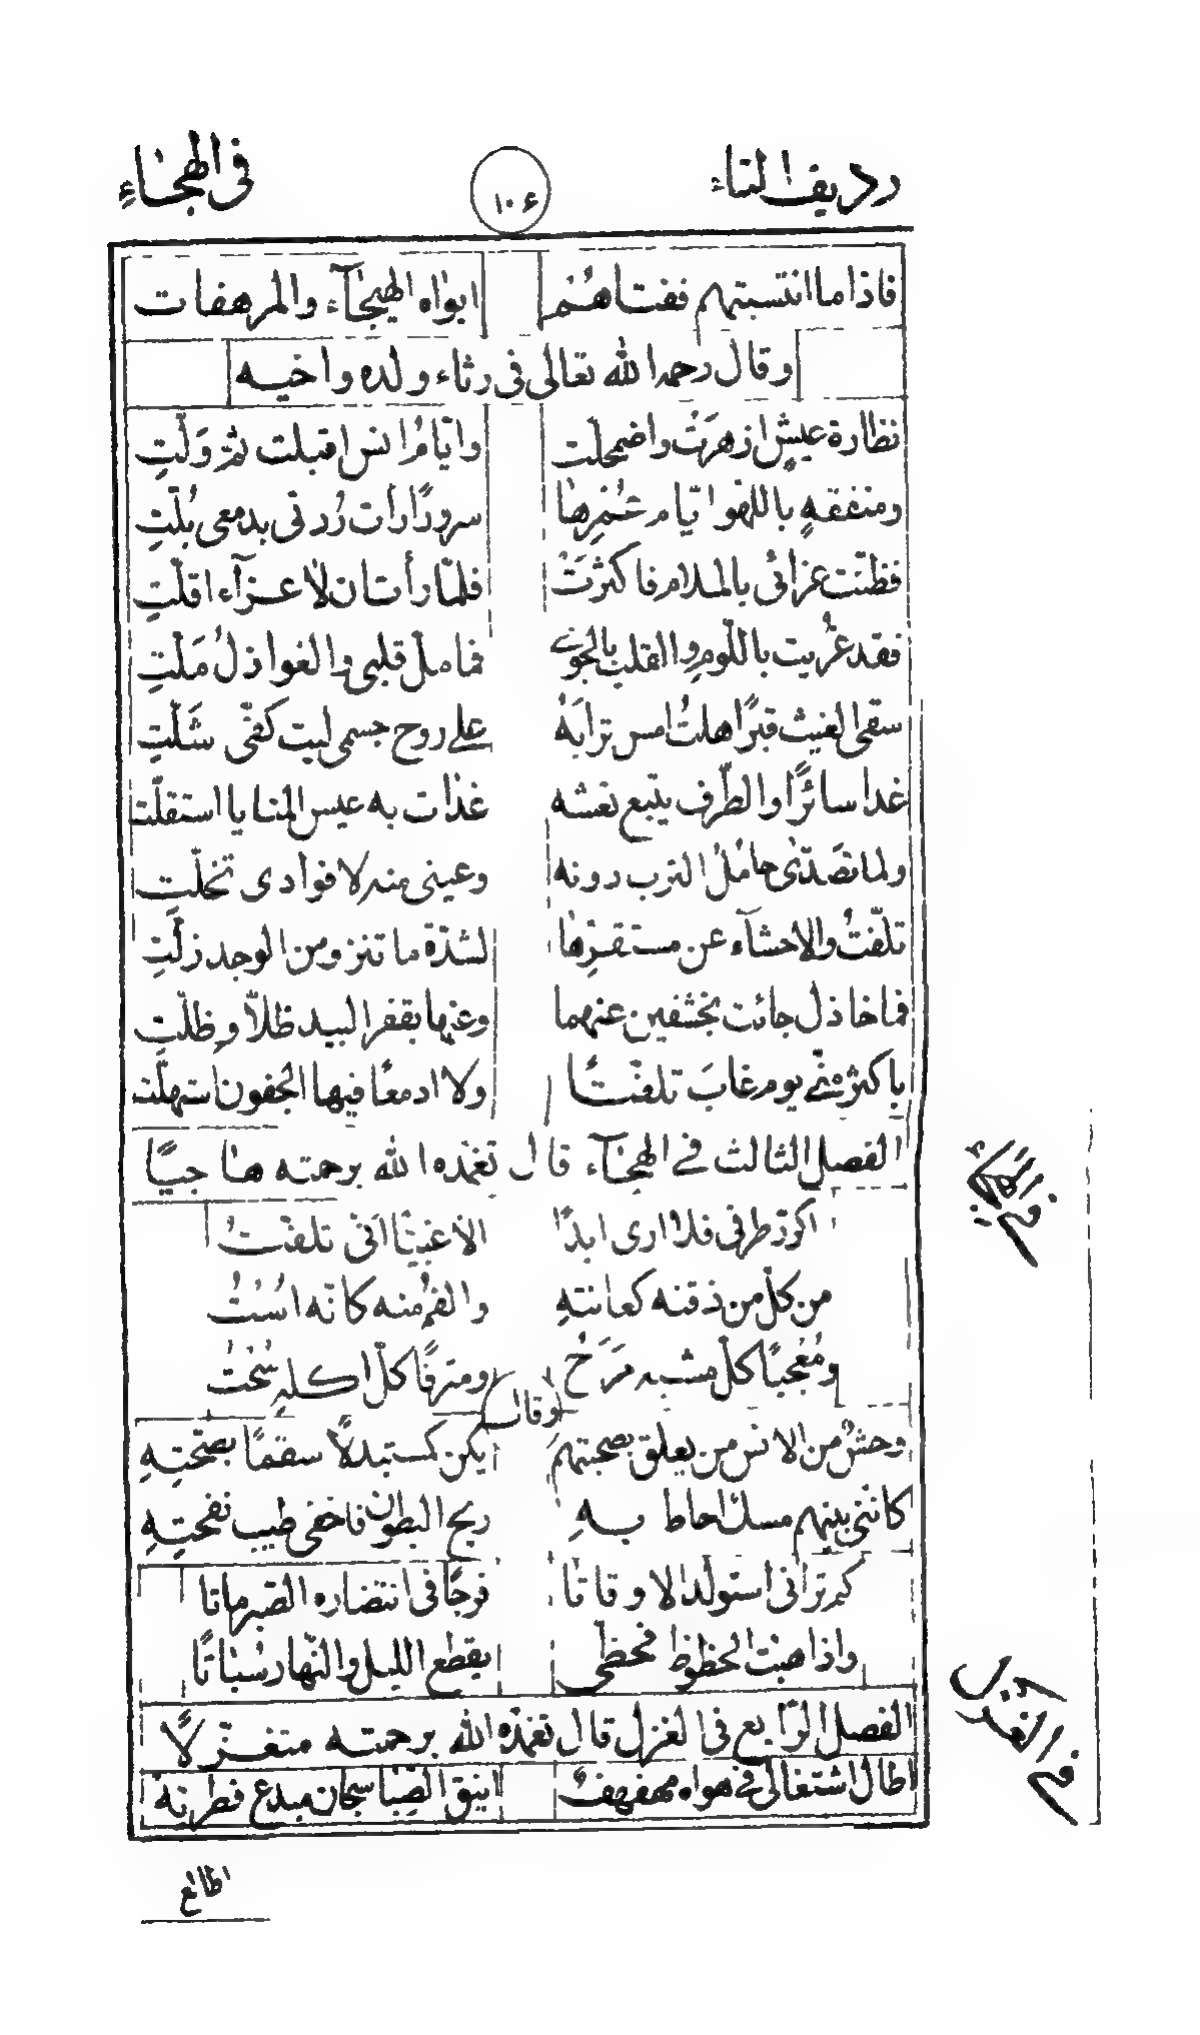 رديف التاء ١٠٤ في الهجاءِ
فاذا ما انتسبتهم ففتاهُم ابواه الهيجآء والمرهفات
وقال رحمه الله تعالى في رثاء ولده واخيه
نظارة عيشٍ ازهرَتْ واضمحلت وايّامُ انس اقبلت ثمّ وَلّتِ
ومنفقهٍ باللهو ايّام عُمرِها سرورًا رأت رُدنى بدمعى بُلّتِ
فظنّت عزائى بالملام فاكثرَتْ فلمّا رأت ان لا عزآء اقلّتِ
فقد غُريت باللّومِ والقلب بالجوى فما ملّ قلبى والعواذلُ مَلّتِ
سقى الغيث قبرًا هلتُ امس ترابَهُ على روح جسمى ليت كفّى شَلّتِ
غدا سائرًا والطّرف يتبع نعشه غدات به عيس المنايا استقلّت
ولما تصَدّى حاملُ الترب دونه وعينى منه لا فوادى تخلّت
تلفّتُ والاحشآء عن مستقرّها لشدّة ما تنزو من الوجد زلّتِ
فما خاذل جائت بخشفين عنهما وعنها بقفر البيد ظلاّ وظلّتِ
باكثر منّى يوم غابَ تلفّتًا ولا ادمعًا فيها الجفون استهلّت
الفصل الثالث في الهجآء قال تغمّده الله برحمته هاجيًا
اكرّ طرفى فلا ارى ابدًا الا غبيًّا انى تلفّتُ
من كلّ من ذقنه كعانتهِ والفمُ منه كانّه اسْتُ
ومُعجبًا كلّ مشيه مَرَحُ ومترفًا كلّ اكلهِ سُحْتُ
وقال
وحشٌ من الانس من يعلق بصحبتهم يكن كمستبدلًا سقمًا بصحّتهِ
كاننى بينهم مسك احاط بهِ ريح البطون فاخفى طيب نفحتهِ
كم ترانى استولد الاوقاتا فرجًا فى انتضاره الصّبر ماتا
واذا هبّت الحظوظ فحظّى يقطع الليل والنّهار سُباتًا
الفصل الرّابع فى الغزل قال تغمّده الله برحمته متغزّلًا
اطال اشتغالى في هواه مهفهفٌ انيق الصّبا سبحان مبدع فطرته
في الهجاء
في الغزل
اطالع